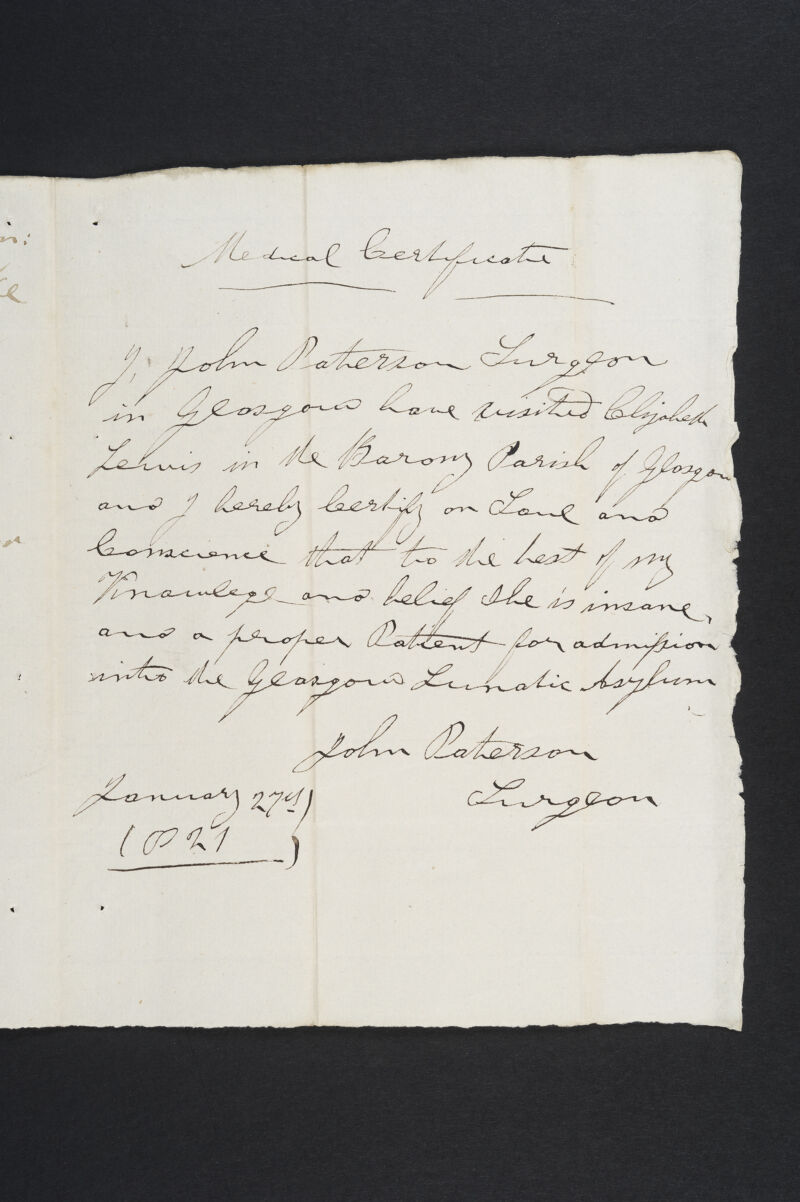 Medical Certificate
I, John Paterson Surgeon
in Glasgow have visited Elizabeth
Lewis in the Barony Parish of Glasgow
and I hereby Certify on Soul and
Conscience that to the best of my
Knowlege and belief She is insane,
and a proper Patient for admission
into the Glasgow Lunatic Asylum
John Paterson
Surgeon
January 27th)
1821)